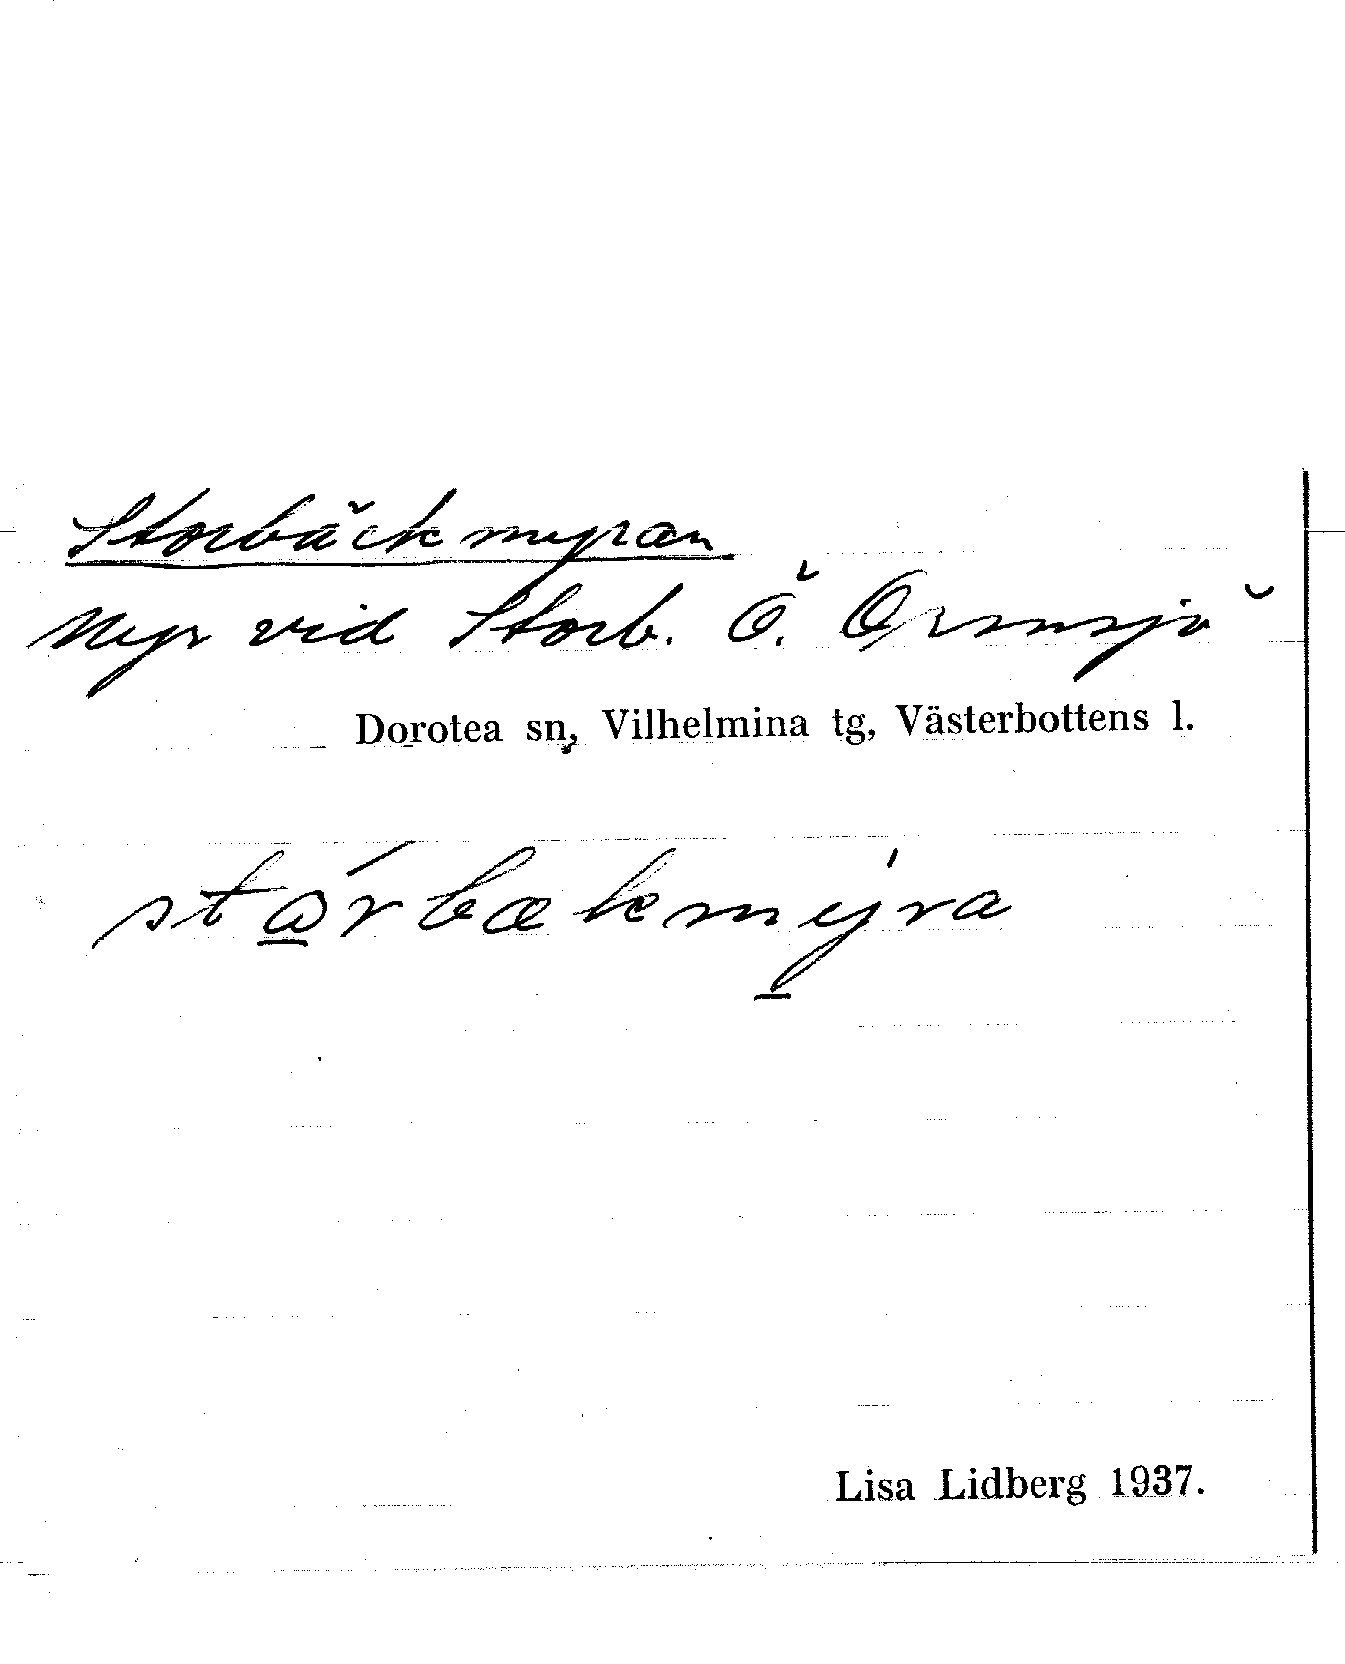 Storbäckmyran
Myr vid Storb. Ö. Ormsjö
Dorotea sn, Vilhelmina tg, Västerbottens l.
stárbækmýra
Lisa Lidberg 1937.